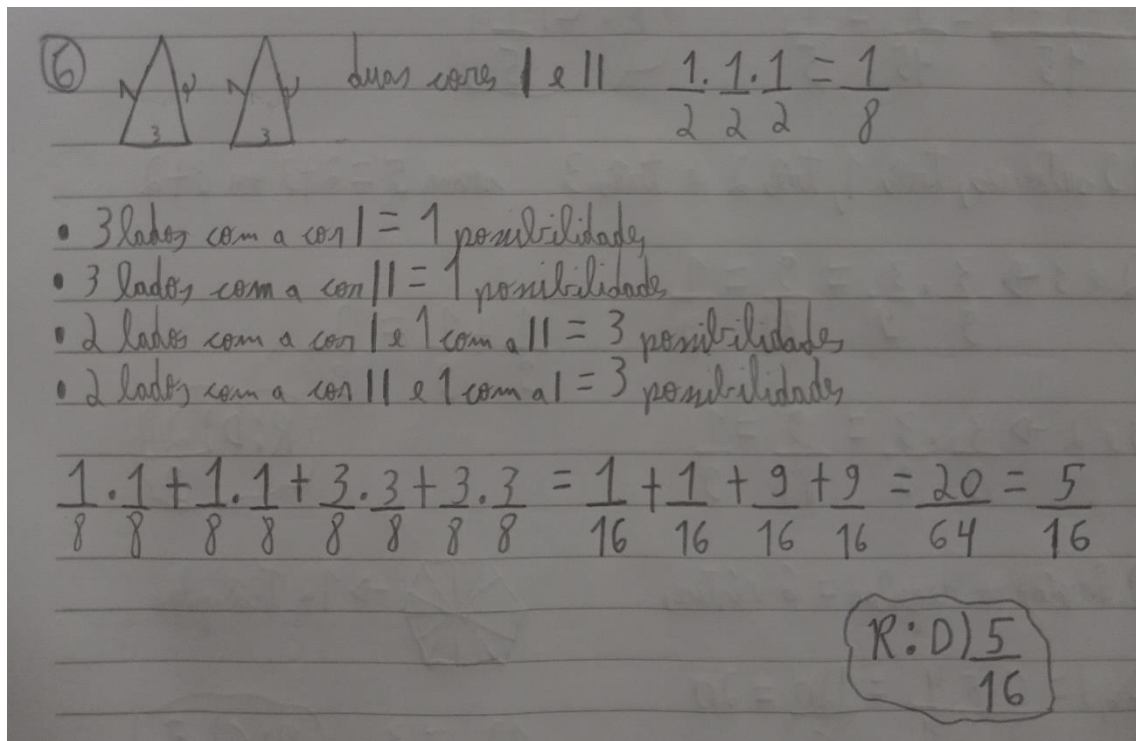 6 duas cores I e II 1/2 . 1/2 . 1/2 = 1/8
3 3
• 3 lados com a cor I = 1 possibilidades
• 3 lados com a cor II = 1 possibilidades
• 2 lados com a cor I e 1 com a II = 3 possibilidades
• 2 lados com a cor II e 1 com a I = 3 possibilidades
1/8 . 1/8 + 1/8 . 1/8 + 3/8 . 3/8 + 3/8 . 3/8 = 1/16 + 1/16 + 9/16 + 9/16 = 20/64 = 5/16
R: D) 5/16